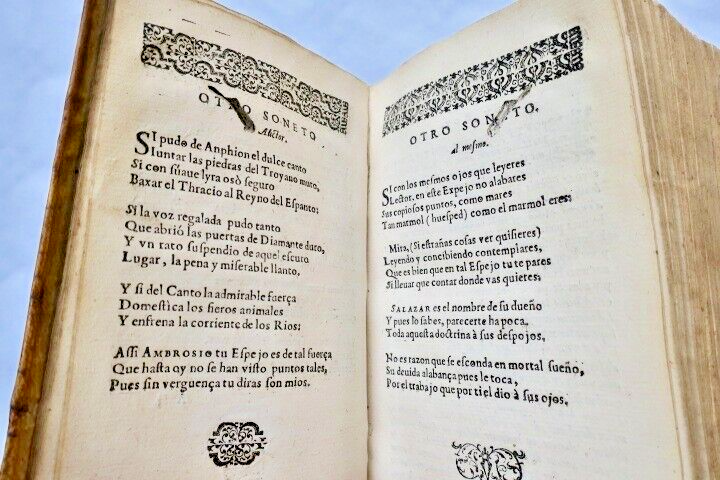 OTRO SONETO.
Al lector.
SI pudo de Anphion el dulce canto
Iuntar las piedras del Troyano muro,
Si con suaue lyra osò seguro
Baxar el Thracio al Reyno del Espanto:
Si la voz regalada pudo tanto
Que abrió las puertas de Diamante duro,
Y vn rato suspendio de aquel escuro
Lugar, la pena y miserable llanto,
Y si del Canto la admirable fuerça
Domestica los fieros animales
Y enfrena la corriente de los Rios:
Assi AMBROSIO tu Espejo es de tal fuerça
Que hasta oy no se han visto puntos tales,
Pues sin verguença tu diras son mios.
OTRO SONETO.
al mesmo.
SI con los mesmos ojos que leyeres
Lector, en este Espejo no alabares
Sus copiosos puntos, como mares
Tan marmol (huesped) como el marmol eres:
Mira, (Si estrañas cosas ver quisieres)
Leyendo y concibiendo contemplares,
Que es bien que en tal Espejo tu te pares
Si lleuar que contar donde vas quieres;
SALAZAR es el nombre de su dueño
Y pues lo sabes, parecerte ha poca,
Toda aquesta doctrina à sus despojos.
No es razon que se esconda en mortal sueño,
Su deuida alabança pues le toca,
Por el trabajo que por ti el dio à sus ojos.